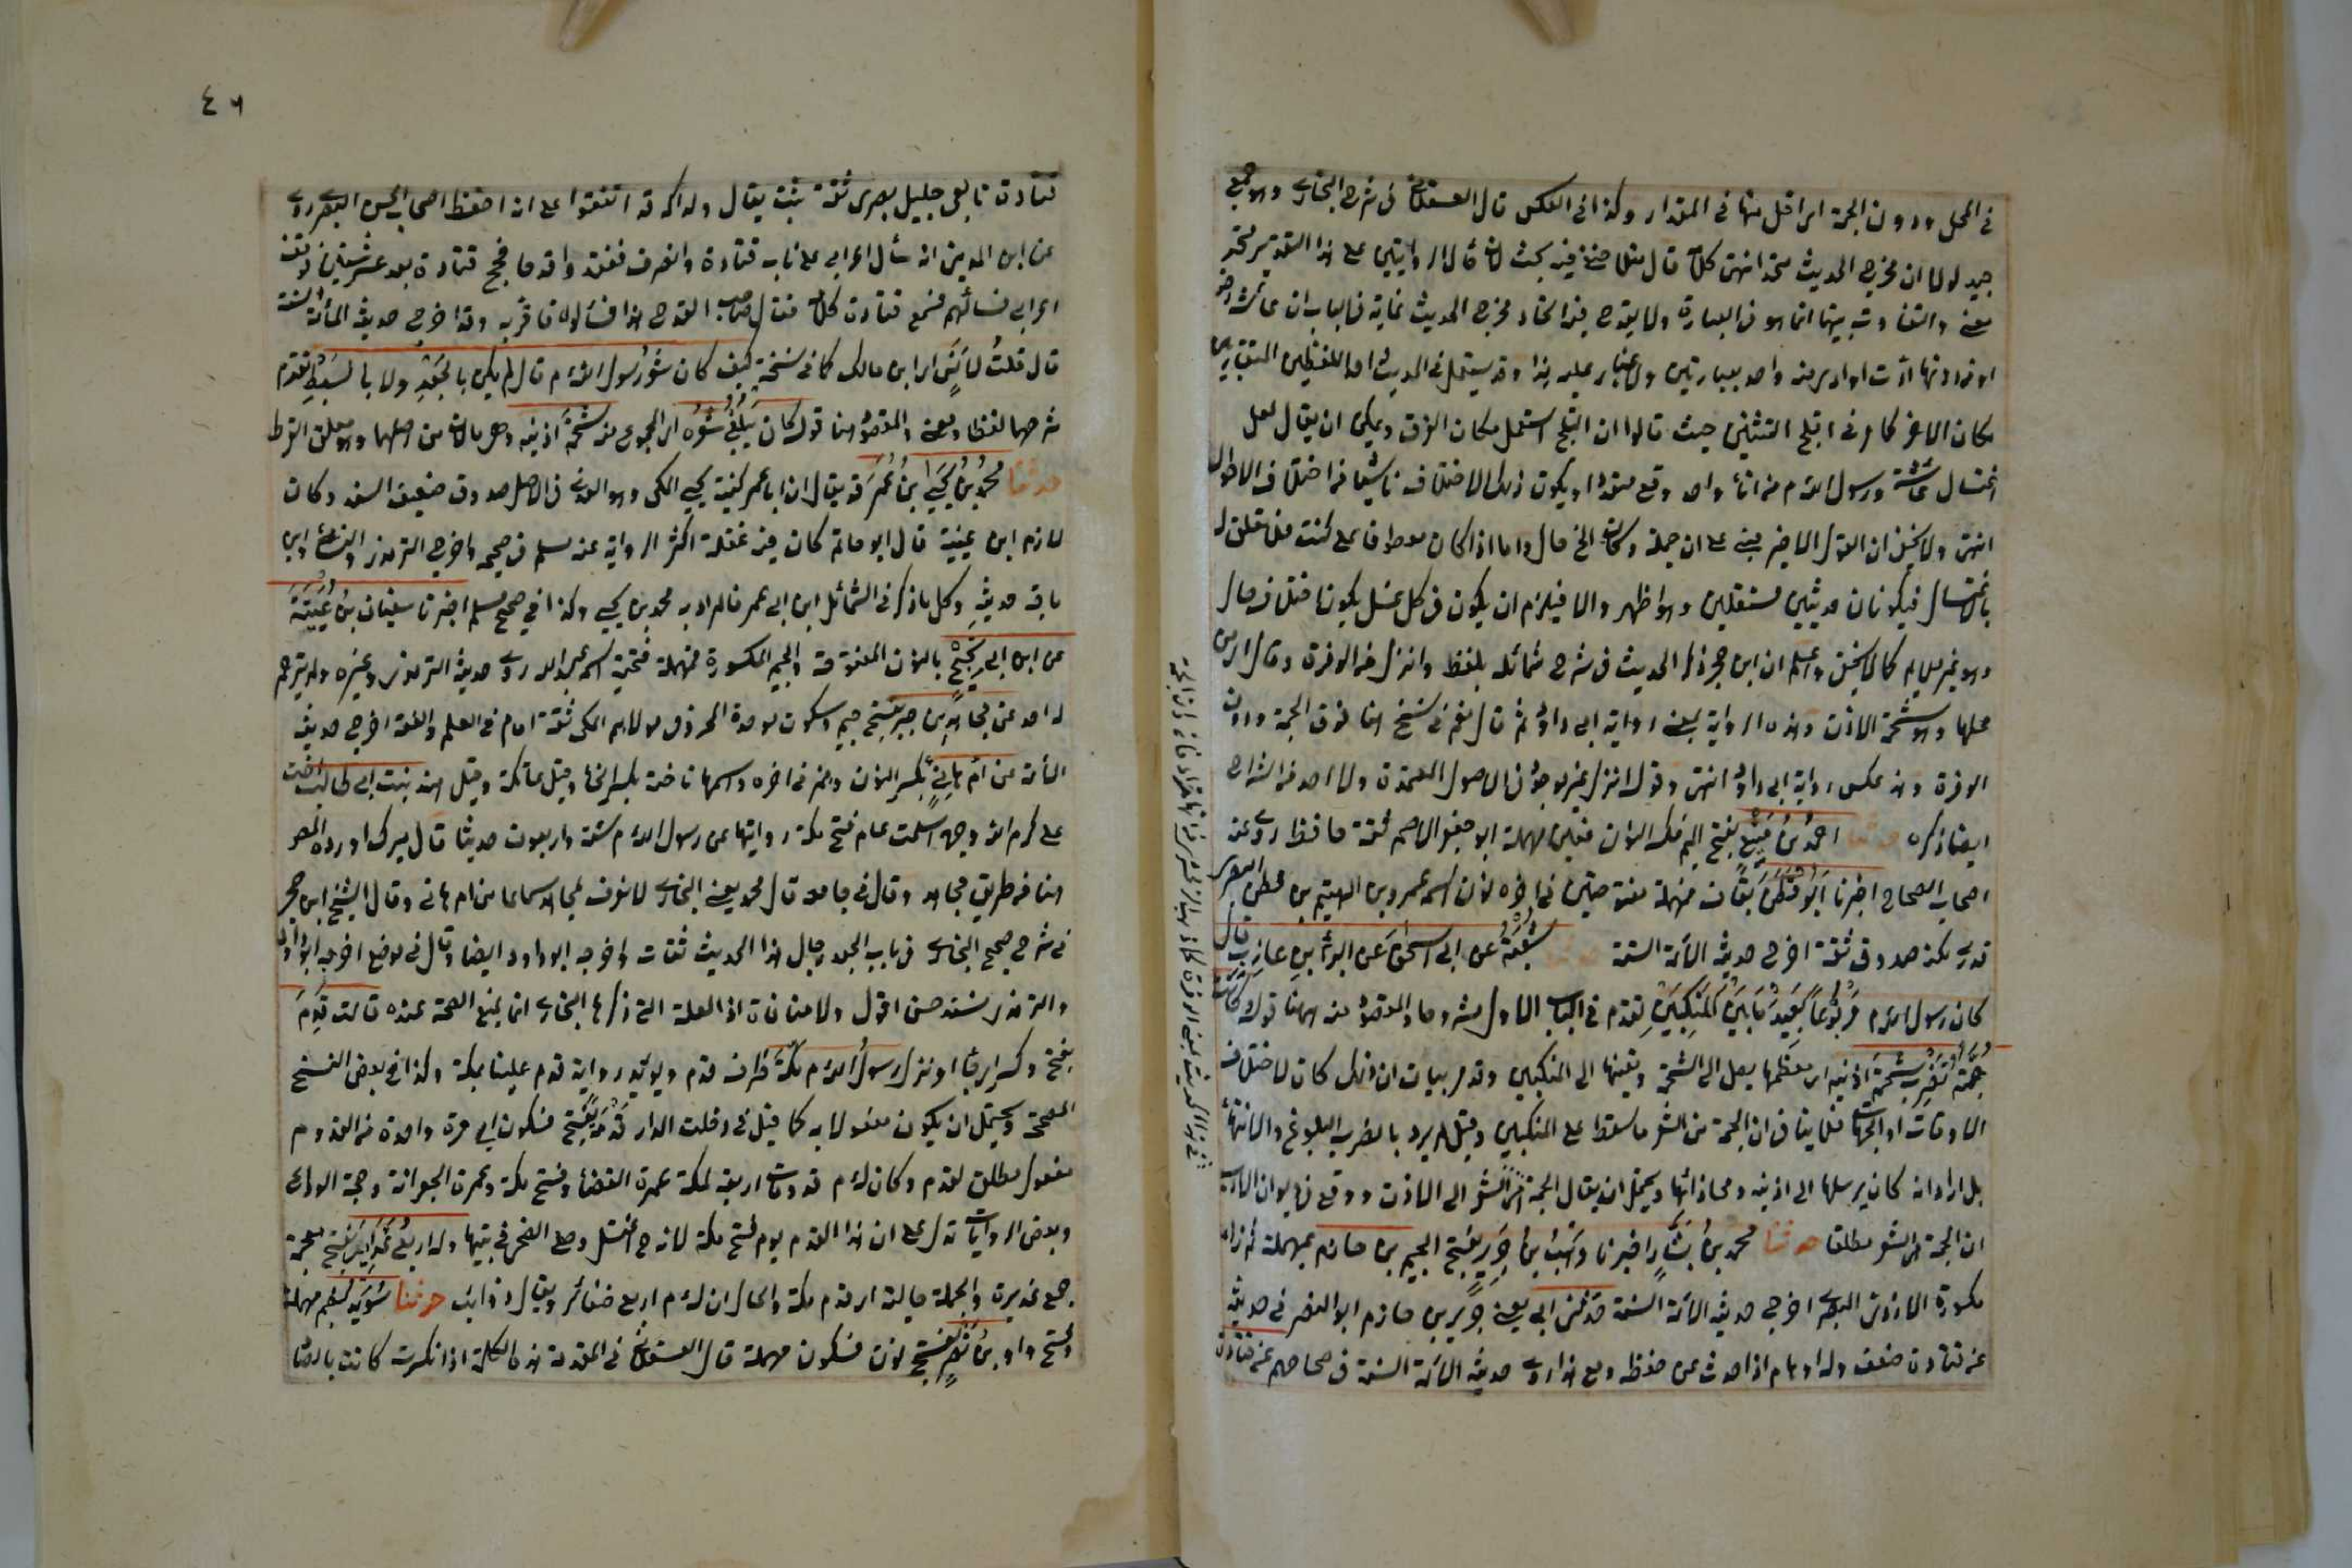 في المحل ودون الجمة اي اقل منها في المقدار وكذا في العكس قال العسقلاني في شرح البخاري وهو جمع
جيد لولا ان مخرج الحديث متحد انتهى كلامه قال مثلا حنفي فيه بحث لان مآل الروايتين على هذا التقدير متحد
معنى والتفاوت بينهما انما هو في العبارة ولا يقدح فيه اتحاد مخرج الحديث غاية ما في الباب ان عائشة رضي
او من دونها ادت اوادى معنى واحد بعبارتين ولا غبار عليه هذا وقد يستعمل في الحديث احد اللفظين المتقاربين
مكان الاخر كما مر في ابلج الثنيتين حيث قالوا ان الفلج استعمل مكان الفرق ويمكن ان يقال لعل
اغتسال عائشة ورسول الله م من اناء واحد وقع متعددا ويكون ذلك الاختلاف ناشيا من اختلاف الاحوال
انتهى ولا يخفى ان القول الاخير مبني على ان جملة وكان الخ حال واما اذا كان معطوفا على كنت فلا تعلق له
بالاغتسال فيكونان حديثين مستقلين وهو اظهر والا فيلزم ان يكون في كل غسل يكون اختلاف حال
وهو غير ملايم كما لا يخفى واعلم ان ابن حجر ذكر الحديث في شرح شمائله بلفظ وانزل من الوفرة وقال اي من
محلها وهو شحمة الاذن وهذه الرواية بمعنى رواية ابي داود ثم قال نعم في نسخ هنا فوق الجمة ودون
الوفرة وهذه عكس رواية ابي داود انتهى وقوله انزل غير موجود في الاصول المعتمدة ولا احد من الشراح
ايضا ذكره حدثنا احمد بن منيع بفتح الميم فكسر النون فعين مهملة ابو جعفر الاصم ثقة حافظ روى عنه
اصحاب الصحاح اخبرنا ابو قطن بقاف فمهملة مفتوحتين في اخره نون اسمه عمرو بن الهيثم بن قطن البصري
قدري لكنه صدوق ثقة اخرج حديثه الائمة الستة حدثنا شعبة عن ابي اسحق عن البراء بن عازب قال
كان رسول الله م مربوعا بعيد ما بين المنكبين تقدم في الباب الاول مشروحا والمقصود منه ههنا قوله كانت
جمته تضرب شحمة اذنيه اي معظمها يصل الى الشحمة وبقيتها الى المنكبين وقد مر بيان ان ذلك كان لاختلاف
الاوقات او الجهات فلا ينافي ان الجمة من الشعر ما سقط على المنكبين وقيل لم يرد بالضرب البلوغ والانتهاء
بل اراد انه كان يرسلها الى اذنيه ومحاذاتها ويحتمل ان يقال الجمة الشعر الى الاذن ووقع في ديوان الادب
ان الجمة هي الشعر مطلقا حدثنا محمد بن بشار اخبرنا وهب بن جرير بفتح الجيم بن حازم بمهملة ثم زاي
مكسورة الازدي البصري اخرج حديثه الائمة الستة حدثني ابي يعني جرير بن حازم ابو النضر في حديثه
عن قتادة ضعف وله اوهام اذا حدث من حفظه ومع هذا روى حديثه الائمة الستة في صحاحهم عن قتادة
٤٦
قتادة تابعي جليل بصري ثقة ثبت يقال ولد اكمه اتفقوا على انه احفظ اصحاب الحسن البصري روى
عن ابن المديني انه سأل اعرابي على باب قتادة وانصرف ففقدوا قدحا فحج قتادة بعد عشر سنين فوقف
اعرابي فسألهم فسمع قتادة كلامه فقال صاحب القدح هذا فسألوه فاقر به وقد اخرج حديثه الائمة الستة
قال قلت لانس اي ابن مالك كما في نسخة كيف كان شعر رسول الله م قال لم يكن بالجعد ولا بالسبط تقدم
شرحهما لفظا ومعنى والمقصود هنا قوله كان يبلغ شعره اي المجموع منه شحمة اذنيه وهو مالان من اصلهما وهو معلق القرط
حدثنا محمد بن يحيى بن ابي عمر قد يقال ان ابا عمر كنية يحيى المكي وهو العدني في الاصل صدوق صنف المسند وكان
لازم ابن عيينة قال ابو حاتم كان فيه غفلة اكثر الرواية عنه مسلم في صحيحه واخرج الترمذي والنسائي وابن
ماجة حديثه وكل ما ذكر في الشمائل ابن ابي عمر فالمراد به محمد بن يحيى وكذا في صحيح مسلم اخبرنا سفيان بن عيينة
عن ابن ابي نجيح بالنون المفتوحة والجيم المكسورة فمهملة فتحية اسمه عبد الله روى حديثه الترمذي وغيره ولم يترجم
له احد عن مجاهد بن جبر بفتح جيم وسكون موحدة المخزومي مولاهم المكي ثقة امام في العلم والفقه اخرج حديثه
الائمة عن ام هانئ بكسر النون وهمز في اخره واسمها فاختة بكسر الخاء وقيل عاتكة وقيل هند بنت ابي طالب اخت
علي كرم الله وجهه اسلمت عام فتح مكة روايتها عن رسول الله م ستة واربعون حديثا قال ميرك اورده المصنف
هنا من طريق مجاهد وقال في جامعه قال محمد يعني البخاري لا نعرف لمجاهد سماعا من ام هانئ وقال الشيخ ابن حجر
في شرح صحيح البخاري في باب الجعد رجال هذا الحديث ثقات واخرجه ابو داود ايضا وقال في موضع اخرجه ابو داود
والترمذي بسند حسن اقول ولا منافاة اذ العلة التي ذكرها البخاري انما يمنع الصحة عنده قالت قدم
بفتح وكسر اي جاء ونزل رسول الله م مكة ظرف قدم ويؤيده رواية قدم علينا بمكة وكذا في بعض النسخ
المصححة ويحتمل ان يكون مفعولا به كما قيل في دخلت الدار قدمة بفتح فسكون اي مرة واحدة من القدوم
مفعول مطلق لقدم وكان له م قدومات اربعة لمكة عمرة القضاء وفتح مكة وعمرة الجعرانة وحجة الوداع
وبعض الروايات تدل على ان هذا القدم يوم فتح مكة لانه ح اغتسل وصلى الضحى في بيتها وله اربع غدائر بفتح معجمة
جمع غديرة والجملة حالية اي قدم مكة والحال ان له م اربع ضفائر ويقال ذوائب حدثنا سويد بضم مهملة
وفتح واو بن نصر بفتح نون فسكون مهملة قال العسقلاني في المقدمة هذه الكلمة اذا نكرت كانت بالصاد